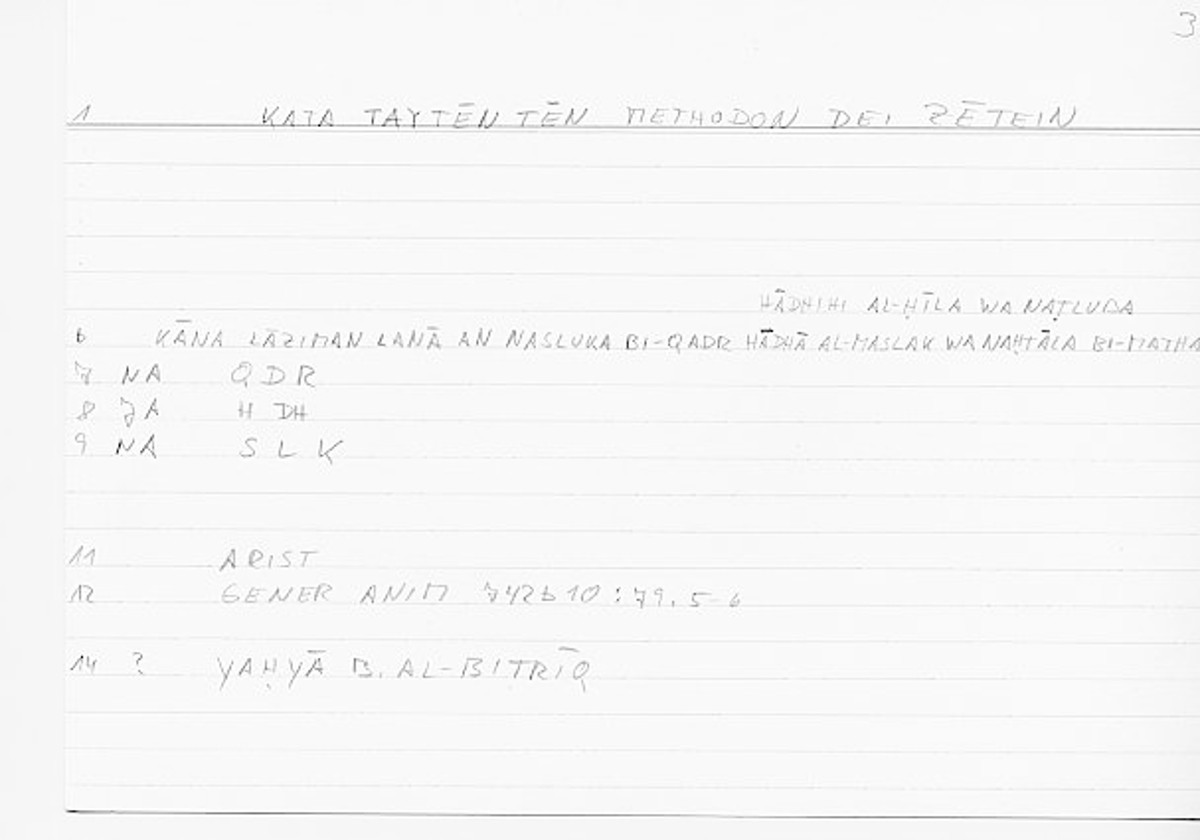 3
1 KATA TAYTĒN TĒN METHODON DEI ZĒTEIN
HĀDHIHI AL-ḤĪLA WA NAṬLUBA
6 KĀNA LĀZIMAN LANĀ AN NASLUKA BI-QADR HĀDHĀ AL-MASLAK WA NAḤTĀLA BI-MATHA
7 NA QDR
8 JA H DH
9 NA S L K
11 ARIST
12 GENER ANIM 742b10 : 79.5-6
14 ? YAḤYĀ B. AL-BIṬRĪQ